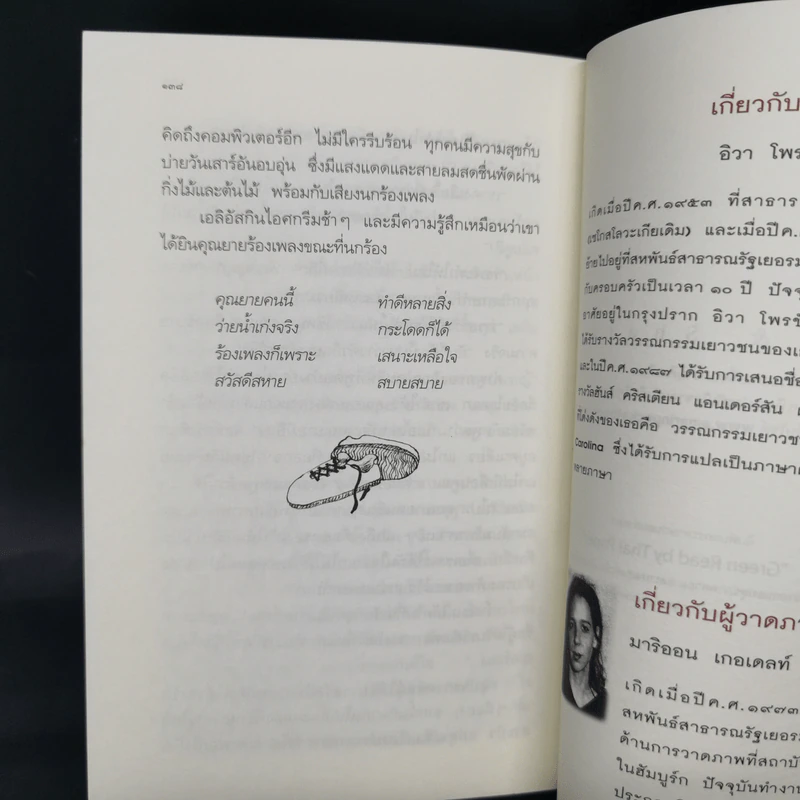 ๑๓๘
คิดถึงคอมพิวเตอร์อีก ไม่มีใครรีบร้อน ทุกคนมีความสุขกับ
บ่ายวันเสาร์อันอบอุ่น ซึ่งมีแสงแดดและสายลมสดชื่นพัดผ่าน
กิ่งไม้และต้นไม้ พร้อมกับเสียงนกร้องเพลง
เอลิอัสกินไอศกรีมช้าๆ และมีความรู้สึกเหมือนว่าเขา
ได้ยินคุณยายร้องเพลงขณะที่นกร้อง
คุณยายคนนี้ ทำดีหลายสิ่ง
ว่ายน้ำเก่งจริง กระโดดก็ได้
ร้องเพลงก็เพราะ เสนาะเหลือใจ
สวัสดีสหาย สบายสบาย
เกี่ยวกับ
อิวา โพร
เกิดเมื่อปีค.ศ.๑๙๕๓ ที่สาธาร
(เชโกสโลวะเกียเดิม) และเมื่อปีค.
ย้ายไปอยู่ที่สหพันธ์สาธารณรัฐเยอร
กับครอบครัวเป็นเวลา ๑๐ ปี ปัจจุ
อาศัยอยู่ในกรุงปราก อิวา โพรช
ได้รับรางวัลวรรณกรรมเยาวชนของเ
และในปีค.ศ.๑๙๘๗ ได้รับการเสนอชื่อ
รางวัลฮันส์ คริสเตียน แอนเดอร์สัน
ที่โด่งดังของเธอคือ วรรณกรรมเยาวช
Carolina ซึ่งได้รับการแปลเป็นภาษา
หลายภาษา
เกี่ยวกับผู้วาดภา
มาริออน เกอเดลท์
เกิดเมื่อปีค.ศ.๑๙๗๓
สหพันธ์สาธารณรัฐเยอร
ด้านการวาดภาพที่สถาบั
ในฮัมบูร์ก ปัจจุบันทำงาน